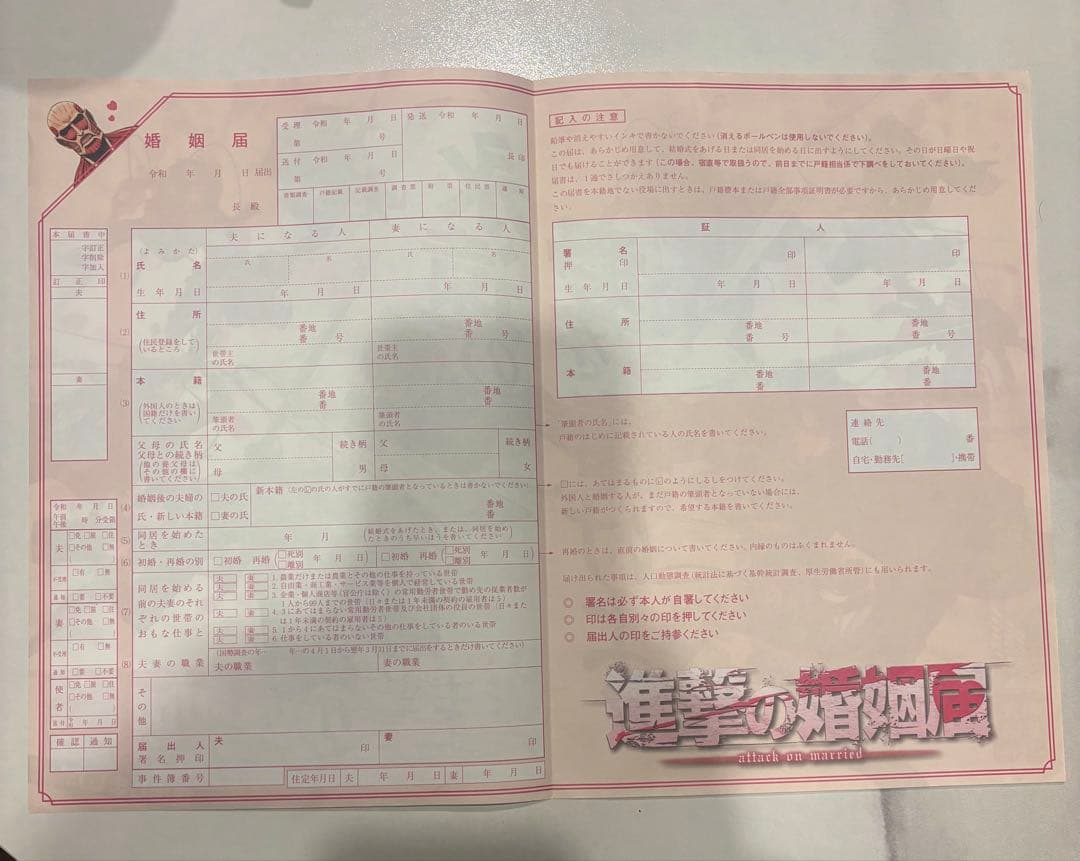 婚姻届
令和 年 月 日 届出
長 殿
受理 令和 年 月 日
第 号
発送 令和 年 月 日
送付 令和 年 月 日
第 号
長印
書類調査 戸籍記載 記載調査 調査票 附票 住民票 通知
本届書中
字訂正
字削除
字加入
訂正印
夫
妻
夫になる人 妻になる人
(1)
(よみかた)
氏名
氏 名 氏 名
生年月日
年 月 日 年 月 日
(2)
住所
(住民登録をして
いるところ)
番地
番 号
番地
番 号
世帯主
の氏名
世帯主
の氏名
(3)
本籍
(外国人のときは
国籍だけを書い
てください)
番地
番
番地
番
筆頭者
の氏名
筆頭者
の氏名
父母の氏名
父母との続き柄
(他の養父母は
その他の欄に
書いてください)
父 続き柄 父 続き柄
母 男 母 女
(4)
婚姻後の夫婦の
氏・新しい本籍
□夫の氏
□妻の氏
新本籍(左の☑の氏の人がすでに戸籍の筆頭者となっているときは書かないでください)
番地
番
(5)
同居を始めた
とき
年 月
(結婚式をあげたとき、または、同居を始め
たときのうち早いほうを書いてください)
(6)
初婚・再婚の別
□初婚 再婚(□死別 □離別 年 月 日)
□初婚 再婚(□死別 □離別 年 月 日)
(7)
同居を始める
前の夫妻のそれ
ぞれの世帯の
おもな仕事と
夫 妻 1. 農業だけまたは農業とその他の仕事を持っている世帯
夫 妻 2. 自由業・商工業・サービス業等を個人で経営している世帯
夫 妻 3. 企業・個人商店等(官公庁は除く)の常用勤労者世帯で勤め先の従業者数が
1人から99人までの世帯(日々または1年未満の契約の雇用者は5)
夫 妻 4. 3にあてはまらない常用勤労者世帯及び会社団体の役員の世帯(日々また
は1年未満の契約の雇用者は5)
夫 妻 5. 1から4にあてはまらないその他の仕事をしている者のいる世帯
夫 妻 6. 仕事をしている者のいない世帯
(8)
夫妻の職業
(国勢調査の年… 年…の4月1日から翌年3月31日までに届出をするときだけ書いてください)
夫の職業 妻の職業
その他
届出人
署名押印
夫 印 妻 印
事件簿番号
住定年月日 夫 年 月 日 妻 年 月 日
令和 年 月 日
午前
午後 時 分受領
夫
□免 □旅 □住
□その他 □無
( )
不受理 □有 □無
通知 □要 □不要
妻
□免 □旅 □住
□その他 □無
( )
不受理 □有 □無
通知 □要 □不要
使者
□免 □旅 □住
□その他 □無
( )
年 月 日
確認 通知
記入の注意
鉛筆や消えやすいインキで書かないでください(消えるボールペンは使用しないでください)。
この届は、あらかじめ用意して、結婚式をあげる日または同居を始める日に出すようにしてください。その日が日曜日や祝
日でも届けることができます(この場合、宿直等で取扱うので、前日までに戸籍担当係で下調べをしておいてください)。
届書は、1通でさしつかえありません。
この届書を本籍地でない役場に出すときは、戸籍謄本または戸籍全部事項証明書が必要ですから、あらかじめ用意してくだ
さい。
証人
署名
押印
印 印
生年月日
年 月 日 年 月 日
住所
番地
番 号
番地
番 号
本籍
番地
番
番地
番
「筆頭者の氏名」には、
戸籍のはじめに記載されている人の氏名を書いてください。
連絡先
電話( ) 番
自宅・勤務先[ ]・携帯
□には、あてはまるものに☑のようにしるしをつけてください。
外国人と婚姻する人が、まだ戸籍の筆頭者となっていない場合には、
新しい戸籍がつくられますので、希望する本籍を書いてください。
再婚のときは、直前の婚姻について書いてください。内縁のものはふくまれません。
届け出られた事項は、人口動態調査(統計法に基づく基幹統計調査、厚生労働省所管)にも用いられます。
◎ 署名は必ず本人が自署してください
◎ 印は各自別々の印を押してください
◎ 届出人の印をご持参ください
進撃の婚姻届
attack on married